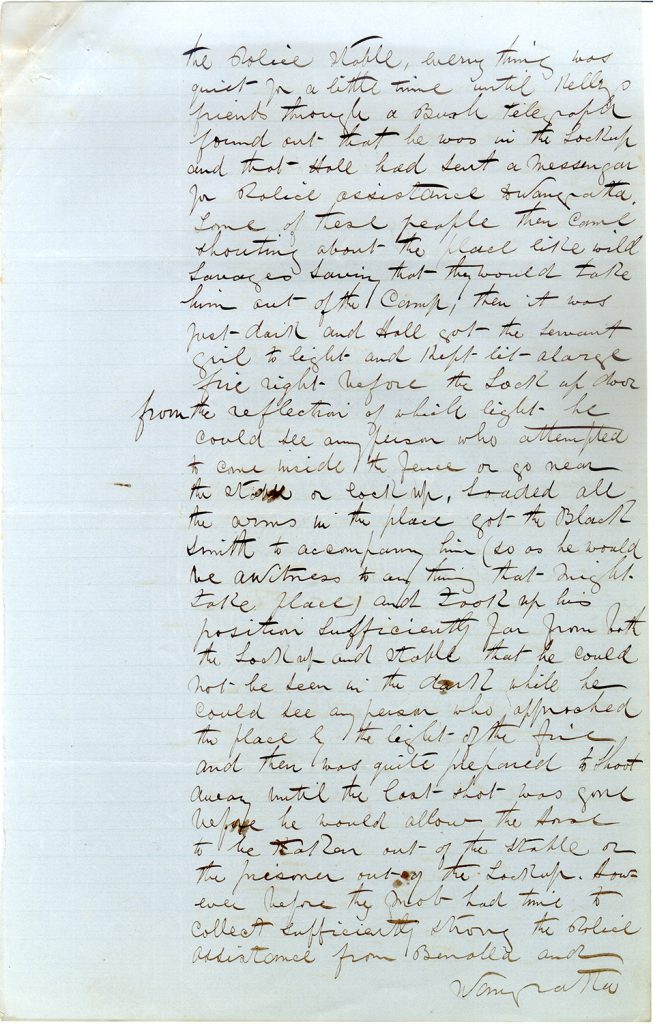 the Police Stable, every thing was
quiet for a little time until Kellys
friends through a Bush telegraph
found out that he was in the Lockup
and that Hall had sent a Messenger
for Police assistance to Wangratta.
Some of these people then came
shouting about the place like wild
Savages Saving that they would take
him out of the Camp, then it was
just dark and Hall got the Servant
girl to light and kept lit a large
fire right before the Lock up door
from the reflection of which light he
could see any person who attempted
to come inside the fence or go near
the stable or lock up, Loaded all
the arms in the place got the Black
Smith to accompany him (so as he would
be a witness to any thing that might
take place) and took up his
position sufficiently far from both
the Lock up and stable that he could
not be seen in the dark while he
could see any person who approched
the place by the light of the fire,
and then was quite prepared to shoot
away until the last shot was gone
before he would allow the horse
to be taken out of the Stable or
the prisoner out of the Lockup. How-
ever before the mob had time to
collect sufficiently strong the Police
assistance from Benalla and
Wangratta